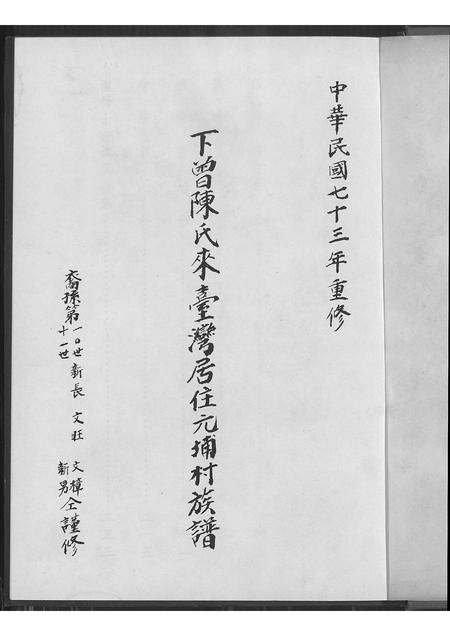 中華民國七十三年重修
下曾陳氏來臺灣居住元埔村族譜
裔孫第一0世十一世新長 文旺 文樟新男仝謹修